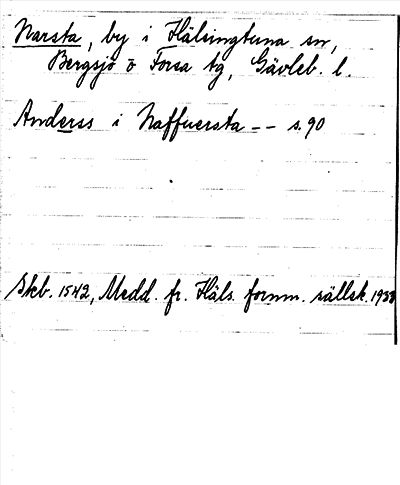 Narsta, by i Hälsingtuna sn,
Bergsjö o Forsa tg, Gävleb. l.
Anderss i Naffuersta -- s. 90
Skb. 1542, Medd. fr. Häls. fornm. sällsk. 1938